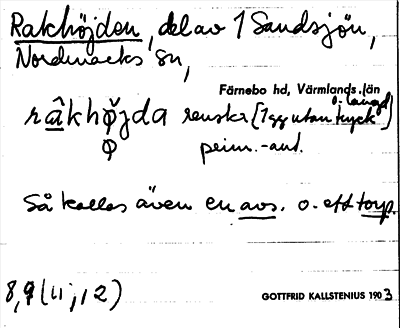 Rakhöjden, del av 1 Sandsjön,
Nordmarks sn,
Färnebo hd, Värmlands län
o. längd
rakhøjda svenska (1 gg utan tryck)
ø
prim.-ant.
Så kallas även en avs. o. ett torp.
8,9 (4; 12)
GOTTFRID KALLSTENIUS 1903